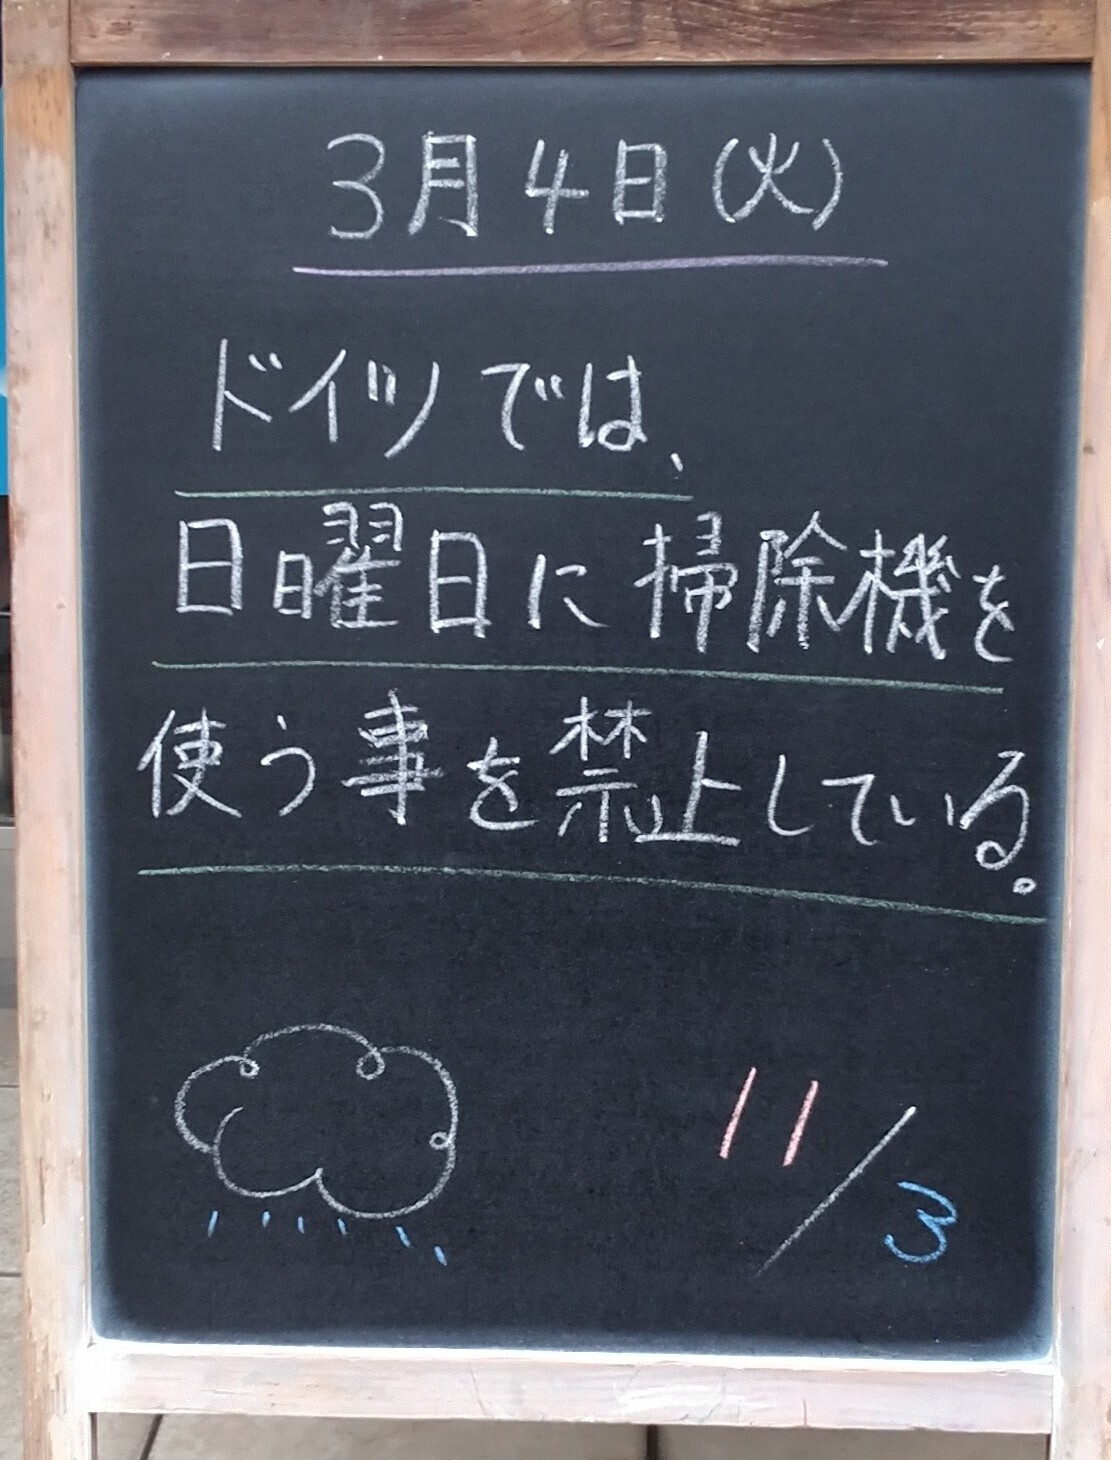 3月4日(火)
ドイツでは、
日曜日に掃除機を
使う事を禁止している。
11/3